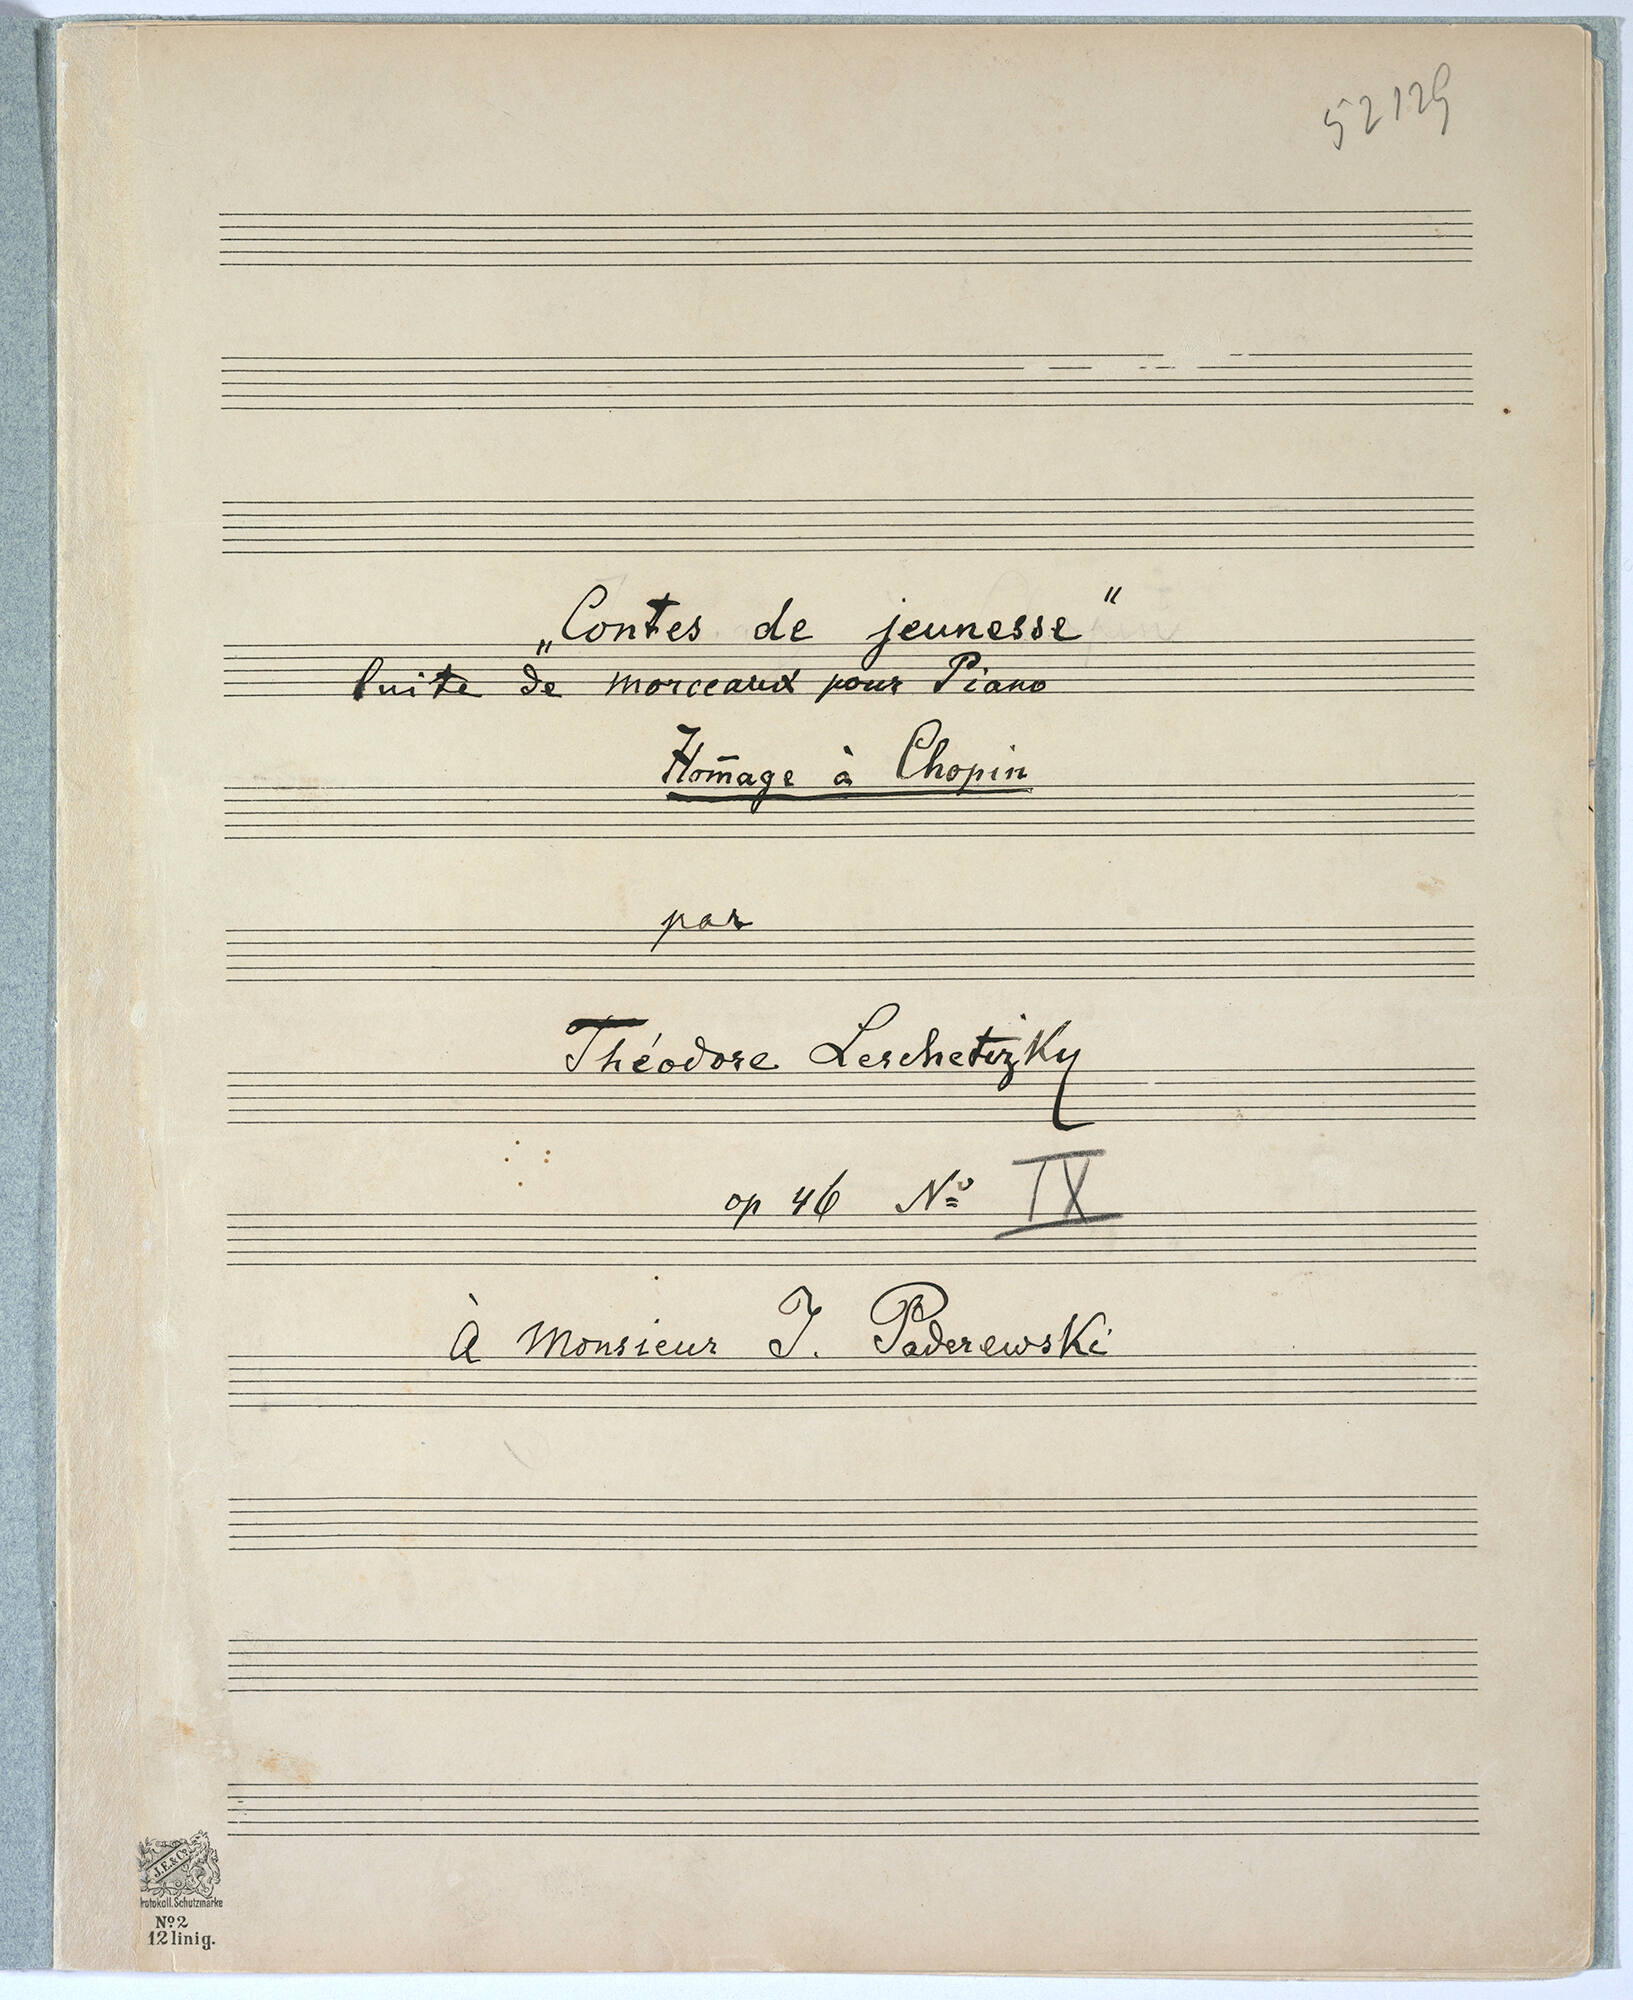 52129
„Contes de jeunesse“
Suite de morceaux pour Piano
Hom̄age à Chopin
par
Théodore Leschetizky
op 46 No IX
à Monsieur J. Paderewski
J.E.&Co.
Protokoll.Schutzmarke
No.2
12linig.